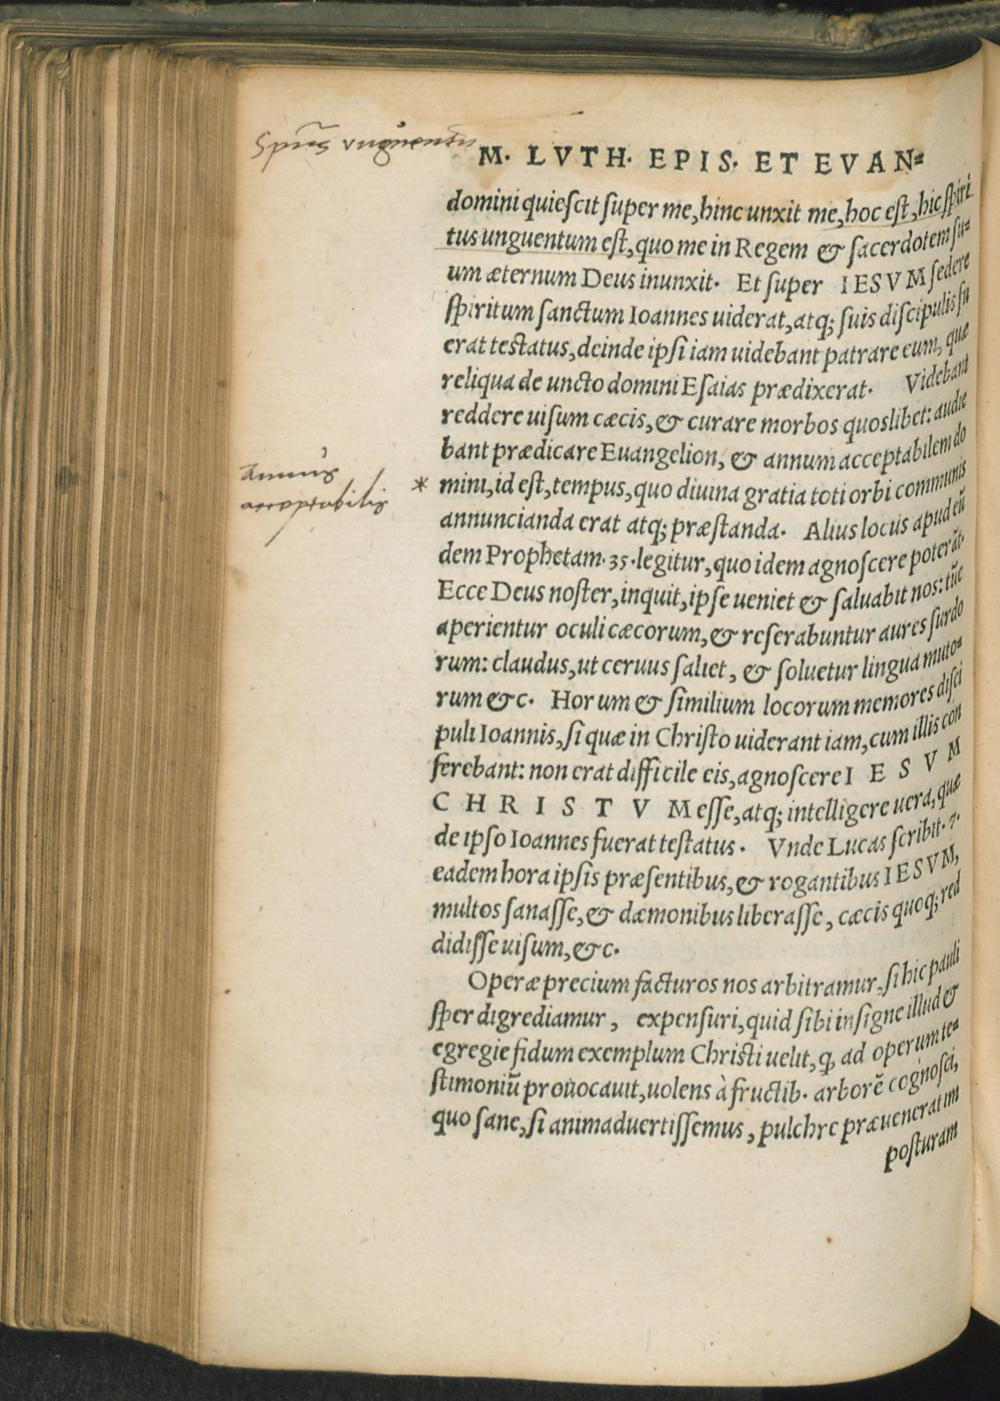 M. LVTH. EPIS. ET EVAN⸗
domini quieſcit ſuper me, hinc unxit me, hoc eſt, hic ſpiri
tus unguentum eſt, quo me in Regem & ſacerdotem ſu⸗
um æternum Deus inunxit. Et ſuper IESVM ſedere
ſpiritum ſanctum Ioannes uiderat, atq; ſuis diſcipulis fu
erat teſtatus, deinde ipſi iam uidebant patrare eum, quæ
reliqua de uncto domini Eſaias prædixerat. Videbant
reddere uiſum cæcis, & curare morbos quoslibet: audie
bant prædicare Euangelion, & annum acceptabilem do
* mini, id eſt, tempus, quo diuina gratia toti orbi communis
annuncianda erat atq; præſtanda. Alius locus apud eū
dem Prophetam. 35. legitur, quo idem agnoſcere poterāt.
Ecce Deus noſter, inquit, ipſe ueniet & ſaluabit nos: tūc
aperientur oculi cæcorum, & reſerabuntur aures ſurdo
rum: claudus, ut ceruus ſaliet, & ſoluetur lingua muto⸗
rum &c. Horum & ſimilium locorum memores diſci
puli Ioannis, ſi quæ in Chriſto uiderant iam, cum illis con
ferebant: non erat difficile eis, agnoſcere I E S V M
C H R I S T V M eſſe, atq; intelligere uera, quæ
de ipſo Ioannes fuerat teſtatus. Vnde Lucas ſcribit. 7.
eadem hora ipſis præſentibus, & rogantibus IESVM,
multos ſanaſſe, & dæmonibus liberaſſe, cæcis quoq; red
didiſſe uiſum, &c.
Operæ precium facturos nos arbitramur, ſi hic pauli
ſper digrediamur, expenſuri, quid ſibi inſigne illud &
egregie fidum exemplum Chriſti uelit, q, ad operum te⸗
ſtimoniū prouocauit, uolens à fructib. arborē cognoſci,
quo ſane, ſi animaduertiſſemus, pulchre præuenerat im
poſturam